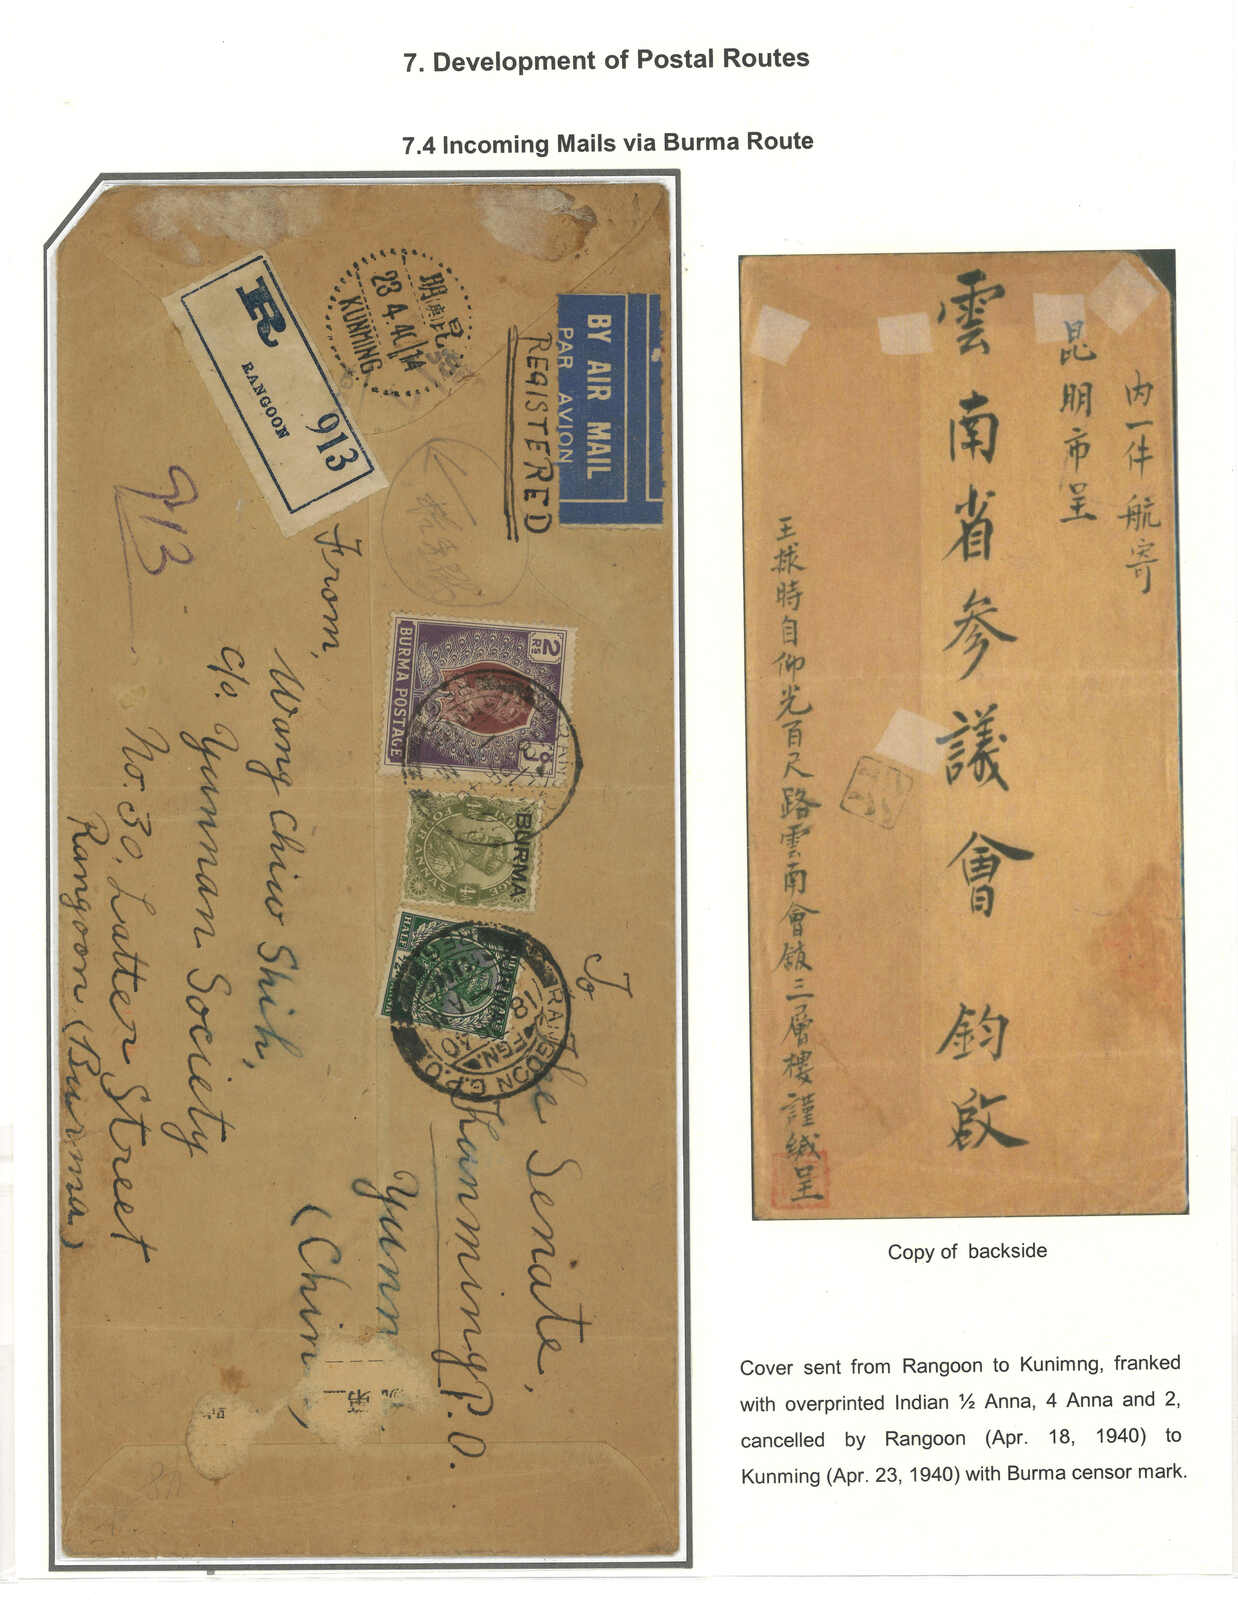 7. Development of Postal Routes
7.4 Incoming Mails via Burma Route
R
RANGOON
913
昆明
23.4.40
KUNMING
BY AIR MAIL
PAR AVION
REGISTERED
913
From,
Wang Chiw Shih,
c/o. Yunnan Society
No. 30, Latter Street
Rangoon (Burma)
2 Rs
BURMA POSTAGE
BURMA
BURMA
HALF
RANGOON G.P.O.
18
FGN
To
The Senate,
Kunming P.O.
Yunn
(China,
第二
內一件航寄
昆明市呈
雲南省參議會 鈞啟
王揪時自仰光百尺路雲南會館三層樓謹緘呈
Copy of backside
Cover sent from Rangoon to Kunimng, franked
with overprinted Indian ½ Anna, 4 Anna and 2,
cancelled by Rangoon (Apr. 18, 1940) to
Kunming (Apr. 23, 1940) with Burma censor mark.